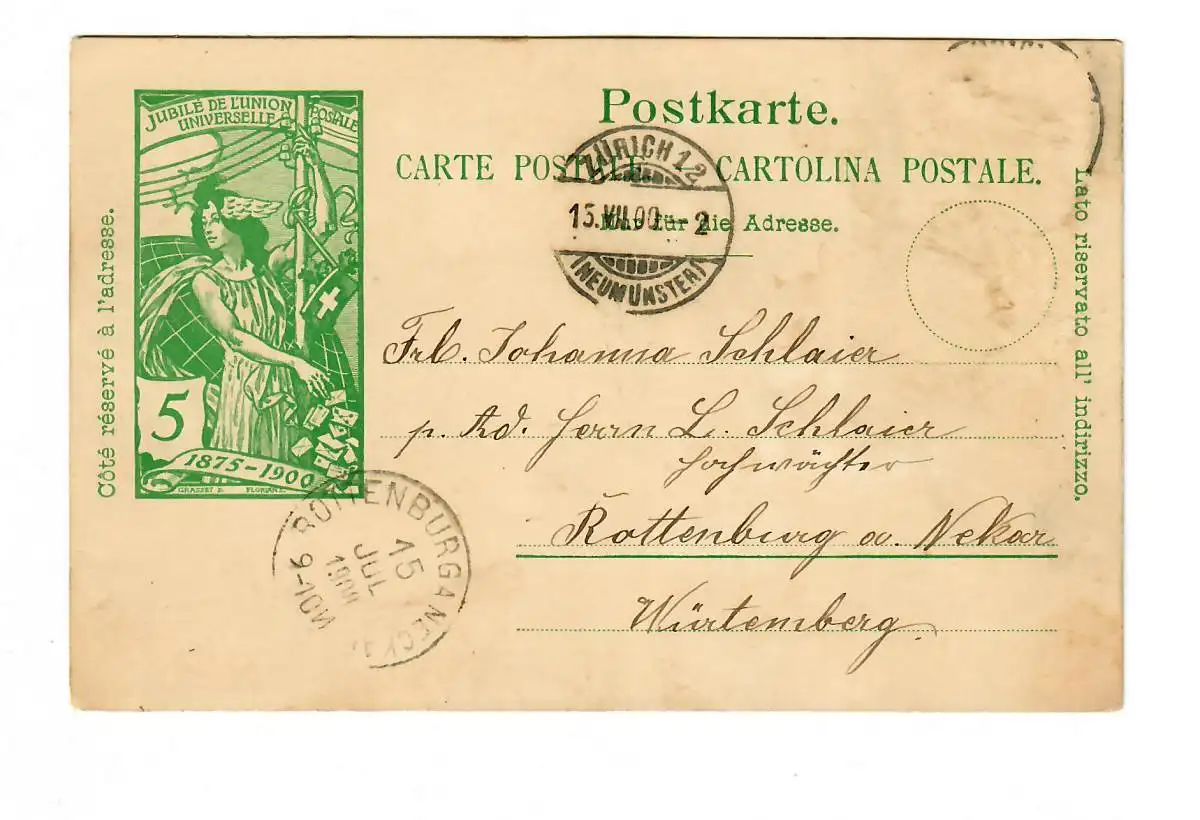 JUBILÉ DE L'UNION
UNIVERSELLE POSTALE
5
1875-1900
GRASSET D. FLORIAN S.
Postkarte.
CARTE POSTALE. CARTOLINA POSTALE.
Nur für die Adresse.
Côté réservé à l'adresse.
Lato riservato all' indirizzo.
ZÜRICH 12
13.VII.00-2
(NEUMÜNSTER)
Frl. Johanna Schlaier
p. Ad. Herrn L. Schlaier
Hochwächter
Rottenburg a. Nekar
Würtemberg.
ROTTENBURG A NECKAR
15
JUL
1900
9-10V